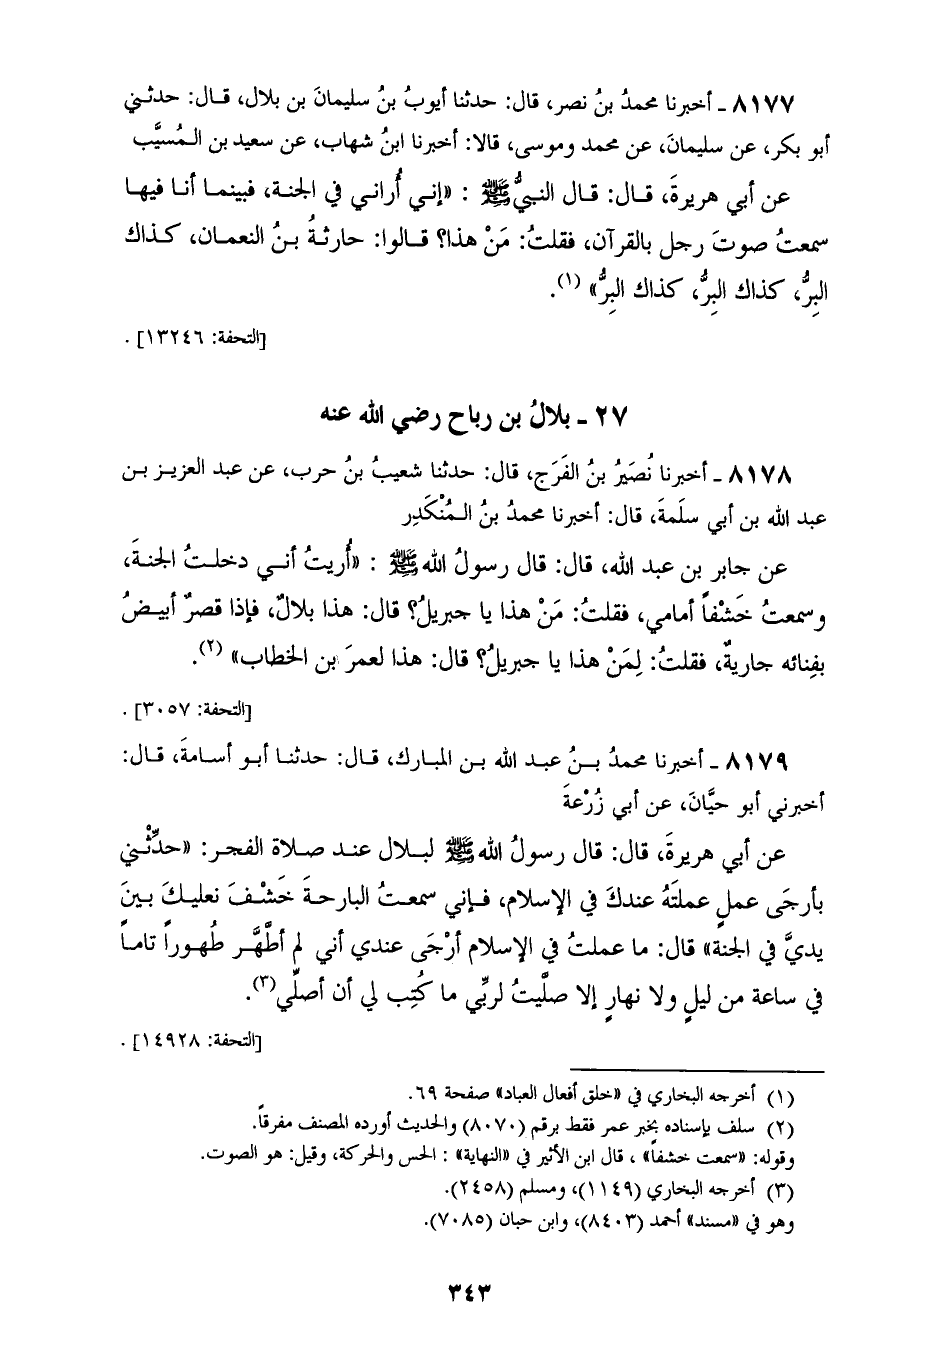 ٨١٧٧ ـ أخبرنا محمدُ بنُ نصر، قال: حدثنا أيوبُ بنُ سليمانَ بن بلال، قال: حدثني
أبو بكر، عن سليمانَ، عن محمد وموسى، قالا: أخبرنا ابنُ شهاب، عن سعيد بن المُسيَّب
عن أبي هريرةَ، قال: قال النبيُّ ﷺ : «إني أُراني في الجنة، فبينما أنا فيها
سمعتُ صوتَ رجل بالقرآن، فقلتُ: مَنْ هذا؟ قالوا: حارثةُ بنُ النعمان، كذاك
البِرُّ، كذاك البِرُّ، كذاك البِرُّ» (١).
[التحفة: ١٣٢٤٦] .
٢٧ ـ بلالُ بن رباح رضي الله عنه
٨١٧٨ ـ أخبرنا نُصَيرُ بنُ الفَرَج، قال: حدثنا شعيبُ بنُ حرب، عن عبد العزيز بن
عبد الله بن أبي سلَمةَ، قال: أخبرنا محمدُ بنُ المُنْكَدِر
عن جابر بن عبد الله، قال: قال رسولُ الله ﷺ : «أُريتُ أني دخلتُ الجنةَ،
وسمعتُ خَشْفاً أمامي، فقلتُ: مَنْ هذا يا جبريلُ؟ قال: هذا بلالٌ، فإذا قصرٌ أبيضُ
بفِنائه جاريةٌ، فقلتُ: لِمَنْ هذا يا جبريلُ؟ قال: هذا لعمرَ بن الخطاب» (٢).
[التحفة: ٣٠٥٧] .
٨١٧٩ ـ أخبرنا محمدُ بنُ عبد الله بن المبارك، قال: حدثنا أبو أسامةَ، قال:
أخبرني أبو حيَّانَ، عن أبي زُرْعةَ
عن أبي هريرةَ، قال: قال رسولُ الله ﷺ لبلال عند صلاة الفجر: «حدِّثْني
بأرجَى عملٍ عملتَهُ عندكَ في الإسلام، فإني سمعتُ البارحةَ خَشْفَ نعليكَ بينَ
يديَّ في الجنة» قال: ما عملتُ في الإسلام أرْجَى عندي أني لم أطَّهَّر طُهوراً تاماً
في ساعة من ليلٍ ولا نهارٍ إلا صلَّيتُ لربِّي ما كُتِب لي أن أصلِّي(٣).
[التحفة: ١٤٩٢٨] .
(١) أخرجه البخاري في «خلق أفعال العباد» صفحة ٦٩.
(٢) سلف بإسناده بخبر عمر فقط برقم (٨٠٧٠) والحديث أورده المصنف مفرقاً.
وقوله: «سمعت خشفاً» ، قال ابن الأثير في «النهاية» : الحس والحركة، وقيل: هو الصوت.
(٣) أخرجه البخاري (١١٤٩)، ومسلم (٢٤٥٨).
وهو في «مسند» أحمد (٨٤٠٣)، وابن حبان (٧٠٨٥).
٣٤٣